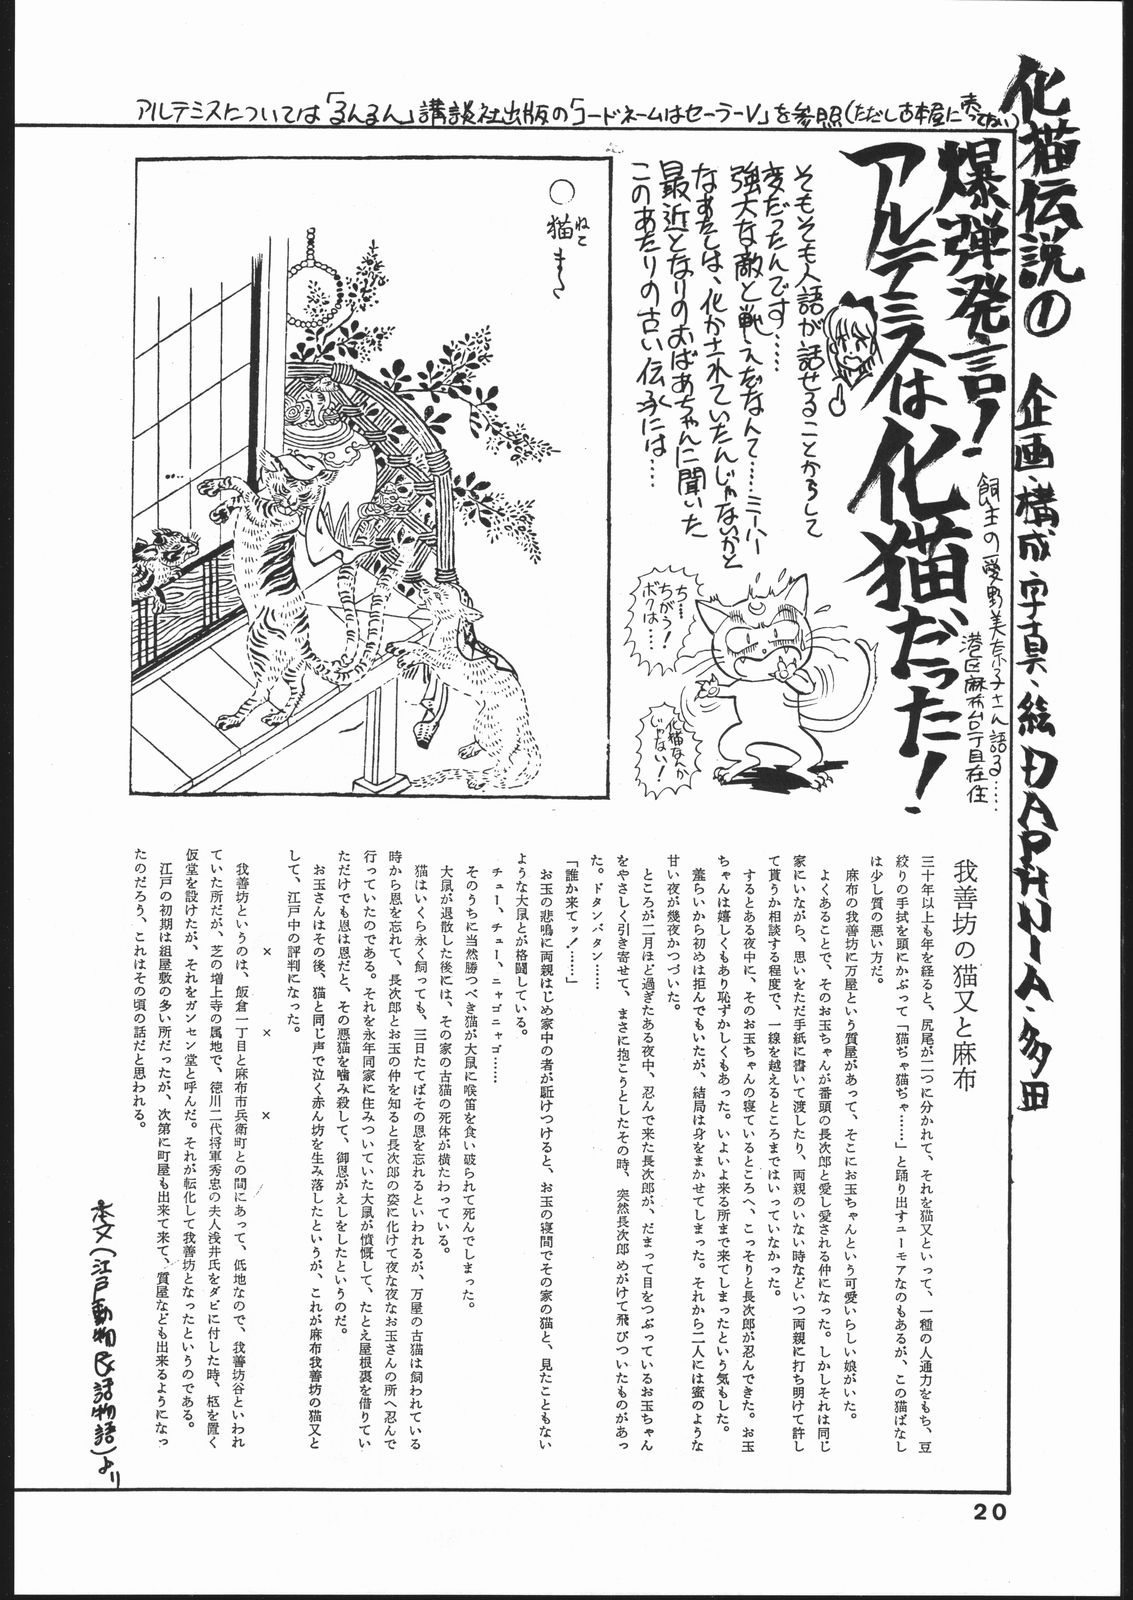 化猫伝説の① 企画・構成・字真・絵 DAPHNIA・多田
アルテミスについては「るんるん」講談社出版の「コードネームはセーラーV」を参照(ただし古本屋に売ってない)
爆弾発言!
アルテミスは化猫だった!
飼主の愛野美奈子さん語る……
港区麻布台一丁目在住
そもそも人語が話せることからして
変だったんです……
強大な敵と戦えだなんて……ミーハー
なあたしは、化かされていたんじゃないかと
最近となりのおばあちゃんに聞いた
このあたりの古い伝承には……
ち…
ちがう!
ボクは…
化猫なんか
じゃない!
○猫また
ねこ
我善坊の猫又と麻布
三十年以上も年を経ると、尻尾が二つに分かれて、それを猫又といって、一種の人通力をもち、豆
絞りの手拭を頭にかぶって「猫ぢゃ猫ぢゃ……」と踊り出すユーモアなのもあるが、この猫ばなし
は少し質の悪い方だ。
麻布の我善坊に万屋という質屋があって、そこにお玉ちゃんという可愛いらしい娘がいた。
よくあることで、そのお玉ちゃんが番頭の長次郎と愛し愛される仲になった。しかしそれは同じ
家にいながら、思いをただ手紙に書いて渡したり、両親のいない時などいつ両親に打ち明けて許し
て貰うか相談する程度で、一線を越えるところまではいっていなかった。
するとある夜中に、そのお玉ちゃんの寝ているところへ、こっそりと長次郎が忍んできた。お玉
ちゃんは嬉しくもあり恥ずかしくもあった。いよいよ来る所まで来てしまったという気もした。
羞らいから初めは拒んでもいたが、結局は身をまかせてしまった。それから二人には蜜のような
甘い夜が幾夜かつづいた。
ところが二月ほど過ぎたある夜中、忍んで来た長次郎が、だまって目をつぶっているお玉ちゃん
をやさしく引き寄せて、まさに抱こうとしたその時、突然長次郎めがけて飛びついたものがあっ
た。ドタンバタン……
「誰か来てッ!……」
お玉の悲鳴に両親はじめ家中の者が駈けつけると、お玉の寝間でその家の猫と、見たこともない
ような大鼠とが格闘している。
チュー、チュー、ニャゴニャゴ……
そのうちに当然勝つべき猫が大鼠に喉笛を食い破られて死んでしまった。
大鼠が退散した後には、その家の古猫の死体が横たわっている。
猫はいくら永く飼っても、三日たてばその恩を忘れるといわれるが、万屋の古猫は飼われている
時から恩を忘れて、長次郎とお玉の仲を知ると長次郎の姿に化けて夜な夜なお玉さんの所へ忍んで
行っていたのである。それを永年同家に住みついていた大鼠が憤慨して、たとえ屋根裏を借りてい
ただけでも恩は恩だと、その悪猫を噛み殺して、御恩がえしをしたというのだ。
お玉さんはその後、猫と同じ声で泣く赤ん坊を生み落したというが、これが麻布我善坊の猫又と
して、江戸中の評判になった。
× × ×
我善坊というのは、飯倉一丁目と麻布市兵衛町との間にあって、低地なので、我善坊谷といわれ
ていた所だが、芝の増上寺の属地で、徳川二代将軍秀忠の夫人浅井氏をダビに付した時、柩を置く
仮堂を設けたが、それをガンセン堂と呼んだ。それが転化して我善坊となったというのである。
江戸の初期は組屋敷の多い所だったが、次第に町屋も出来て来て、質屋なども出来るようになっ
たのだろう、これはその頃の話だと思われる。
本文(江戸動物民話物語)より
20